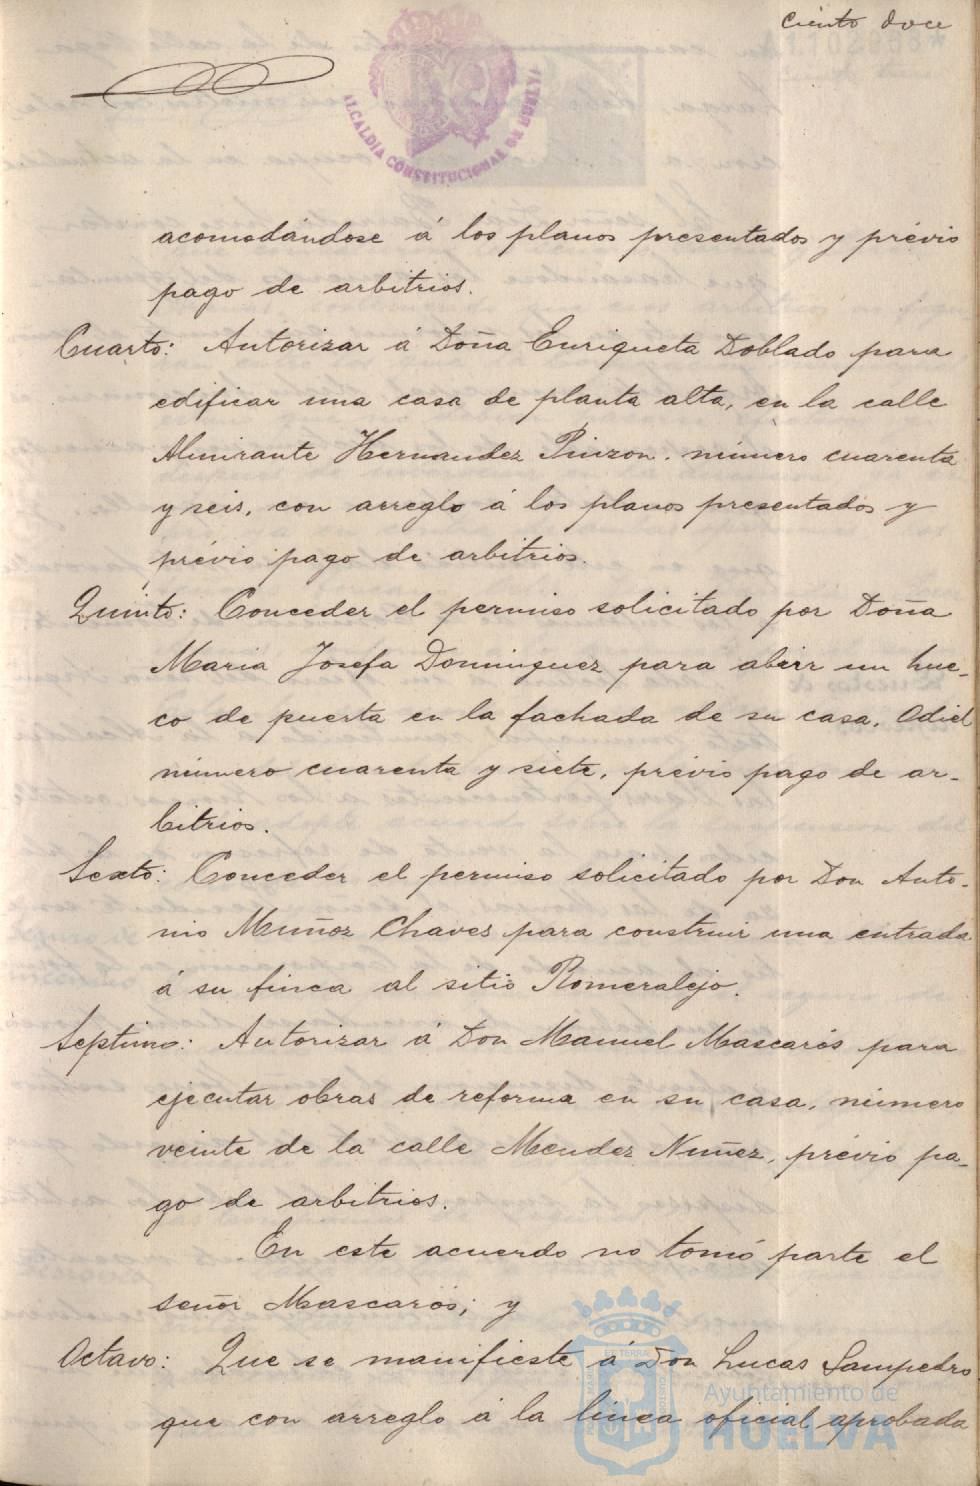 ciento doce
ALCALDIA CONSTITUCIONAL DE HUELVA
acomodándose á los planos presentados y prévio
pago de arbitrios.
Cuarto: Autorizar á Doña Enriqueta Doblado para
edificar una casa de planta alta, en la calle
Almirante Hernandez Pinzon, número cuarenta
y seis, con arreglo á los planos presentados y
prévio pago de arbitrios.
Quinto: Conceder el permiso solicitado por Doña
Maria Josefa Dominguez para abirr un hue-
co de puerta en la fachada de su casa, Odiel
número cuarenta y siete, prévio pago de ar-
bitrios.
Sexto: Conceder el permiso solicitado por Don Anto-
nio Muñoz Chaves para construir una entrada
á su finca al sitio Romeralejo.
Septimo: Autorizar á Don Manuel Mascarós para
ejecutar obras de reforma en su casa, número
veinte de la calle Mendez Nuñez, prévio pa-
go de arbitrios.
En este acuerdo no tomó parte el
señor Mascarós; y
Octavo: Que se manifieste á Don Lucas Sampedro
que con arreglo á la linea oficial aprobada
Ayuntamiento de
HUELVA